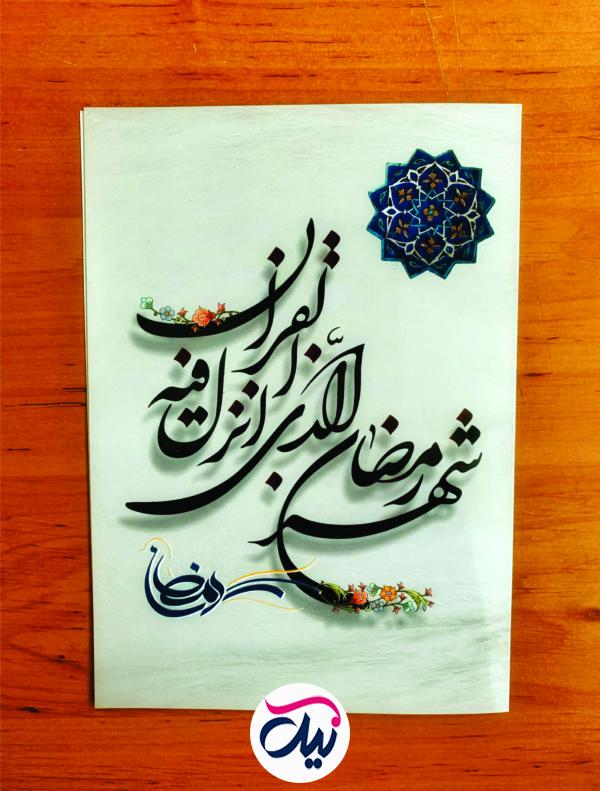 شهر رمضان
الّذی انزل فیه
القرآن
رمضان
نیک